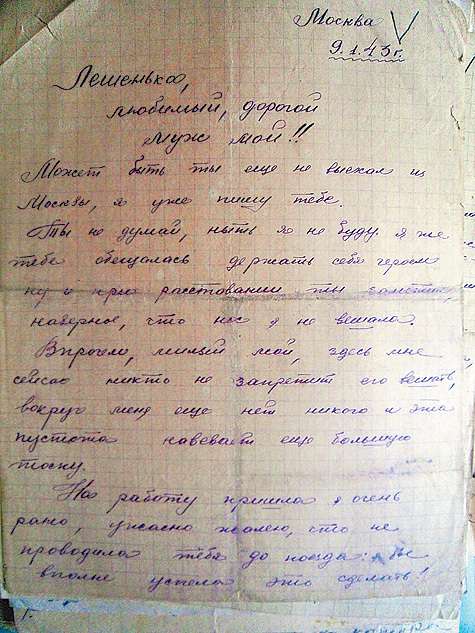 Москва
9.1.43г.
Лешенька,
любимый, дорогой
муж мой!!
Может быть ты еще не выехал из
Москвы, я уже пишу тебе.
Ты не думай, ныть я не буду я же
тебе обещалась держать себя героем
ну и при расставании ты заметил,
наверное, что нос я не вешала.
Впрочем, милый мой, здесь мне
сейчас никто не запретит его вешать,
вокруг меня еще нет никого и эта
пустота навевает еще большую
тоску.
На работу пришла я очень
рано, ужасно жалею, что не
проводила тебя до поезда: я бы
вполне успела это сделать!